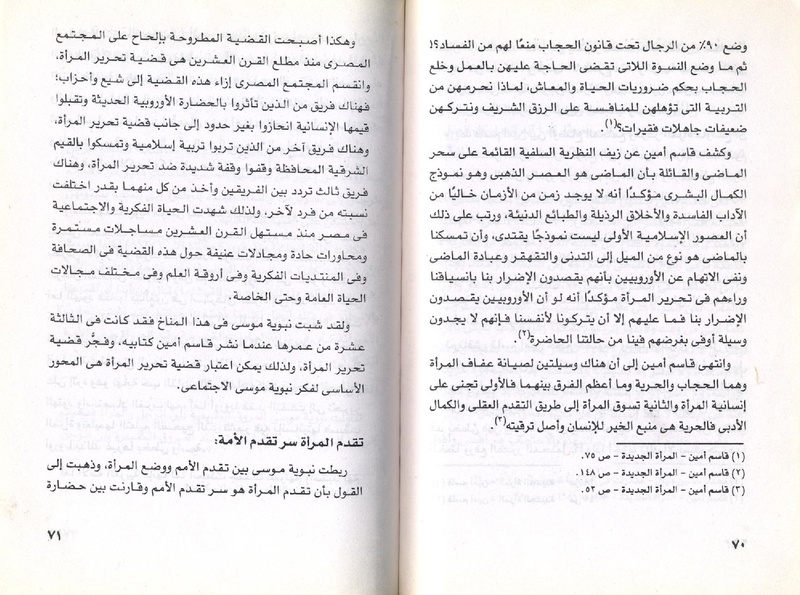 وضع ٩٠٪ من الرجال تحت قانون الحجاب منعًا لهم من الفساد؟!
ثم ما وضع النسوة اللاتى تقضى الحاجة عليهن بالعمل وخلع
الحجاب بحكم ضروريات الحياة والمعاش، لماذا نحرمهن من
التربية التى تؤهلهن للمنافسة على الرزق الشريف ونتركهن
ضعيفات جاهلات فقيرات؟(١).
وكشف قاسم أمين عن زيف النظرية السلفية القائمة على سحر
الماضى والقائلة بأن الماضى هو العصر الذهبى وهو نموذج
الكمال البشرى مؤكدًا أنه لا يوجد زمن من الأزمان خاليًا من
الآداب الفاسدة والأخلاق الرذيلة والطبائع الدنيئة، ورتب على ذلك
أن العصور الإسلامية الأولى ليست نموذجًا يقتدى، وأن تمسكنا
بالماضى هو نوع من الميل إلى التدنى والتقهقر وعبادة الماضى
ونفى الاتهام عن الأوروبيين بأنهم يقصدون الإضرار بنا بانسياقنا
وراءهم فى تحرير المرأة مؤكدًا أنه لو أن الأوروبيين يقصدون
الإضرار بنا فما عليهم إلا أن يتركونا لأنفسنا فإنهم لا يجدون
وسيلة أوفى بغرضهم فينا من حالتنا الحاضرة(٢).
وانتهى قاسم أمين إلى أن هناك وسيلتين لصيانة عفاف المرأة
وهما الحجاب والحرية وما أعظم الفرق بينهما فالأولى تجنى على
إنسانية المرأة والثانية تسوق المرأة إلى طريق التقدم العقلى والكمال
الأدبى فالحرية هى منبع الخير للإنسان وأصل ترقيته(٣).
(١) قاسم أمين – المرأة الجديدة – ص ٧٥.
(٢) قاسم أمين – المرأة الجديدة – ص ١٤٨.
(٣) قاسم أمين – المرأة الجديدة – ص ٥٢.
٧٠
وهكذا أصبحت القضية المطروحة بإلحاح على المجتمع
المصرى منذ مطلع القرن العشرين هى قضية تحرير المرأة،
وانقسم المجتمع المصرى إزاء هذه القضية إلى شيع وأحزاب؛
فهناك فريق من الذين تأثروا بالحضارة الأوروبية الحديثة وتقبلوا
قيمها الإنسانية انحازوا بغير حدود إلى جانب قضية تحرير المرأة،
وهناك فريق آخر من الذين تربوا تربية إسلامية وتمسكوا بالقيم
الشرقية المحافظة وقفوا وقفة شديدة ضد تحرير المرأة، وهناك
فريق ثالث تردد بين الفريقين وأخذ من كل منهما بقدر اختلفت
نسبته من فرد لآخر، ولذلك شهدت الحياة الفكرية والاجتماعية
فى مصر منذ مستهل القرن العشرين مساجلات مستمرة
ومحاورات حادة ومجادلات عنيفة حول هذه القضية فى الصحافة
وفى المنتديات الفكرية وفى أروقة العلم وفى مختلف مجالات
الحياة العامة وحتى الخاصة.
ولقد شبت نبوية موسى فى هذا المناخ فقد كانت فى الثالثة
عشرة من عمرها عندما نشر قاسم أمين كتابيه، وفجّر قضية
تحرير المرأة، ولذلك يمكن اعتبار قضية تحرير المرأة هى المحور
الأساسى لفكر نبوية موسى الاجتماعى.
تقدم المرأة سر تقدم الأمة:
ربطت نبوية موسى بين تقدم الأمم ووضع المرأة، وذهبت إلى
القول بأن تقدم المرأة هو سر تقدم الأمم وقارنت بين حضارة
٧١